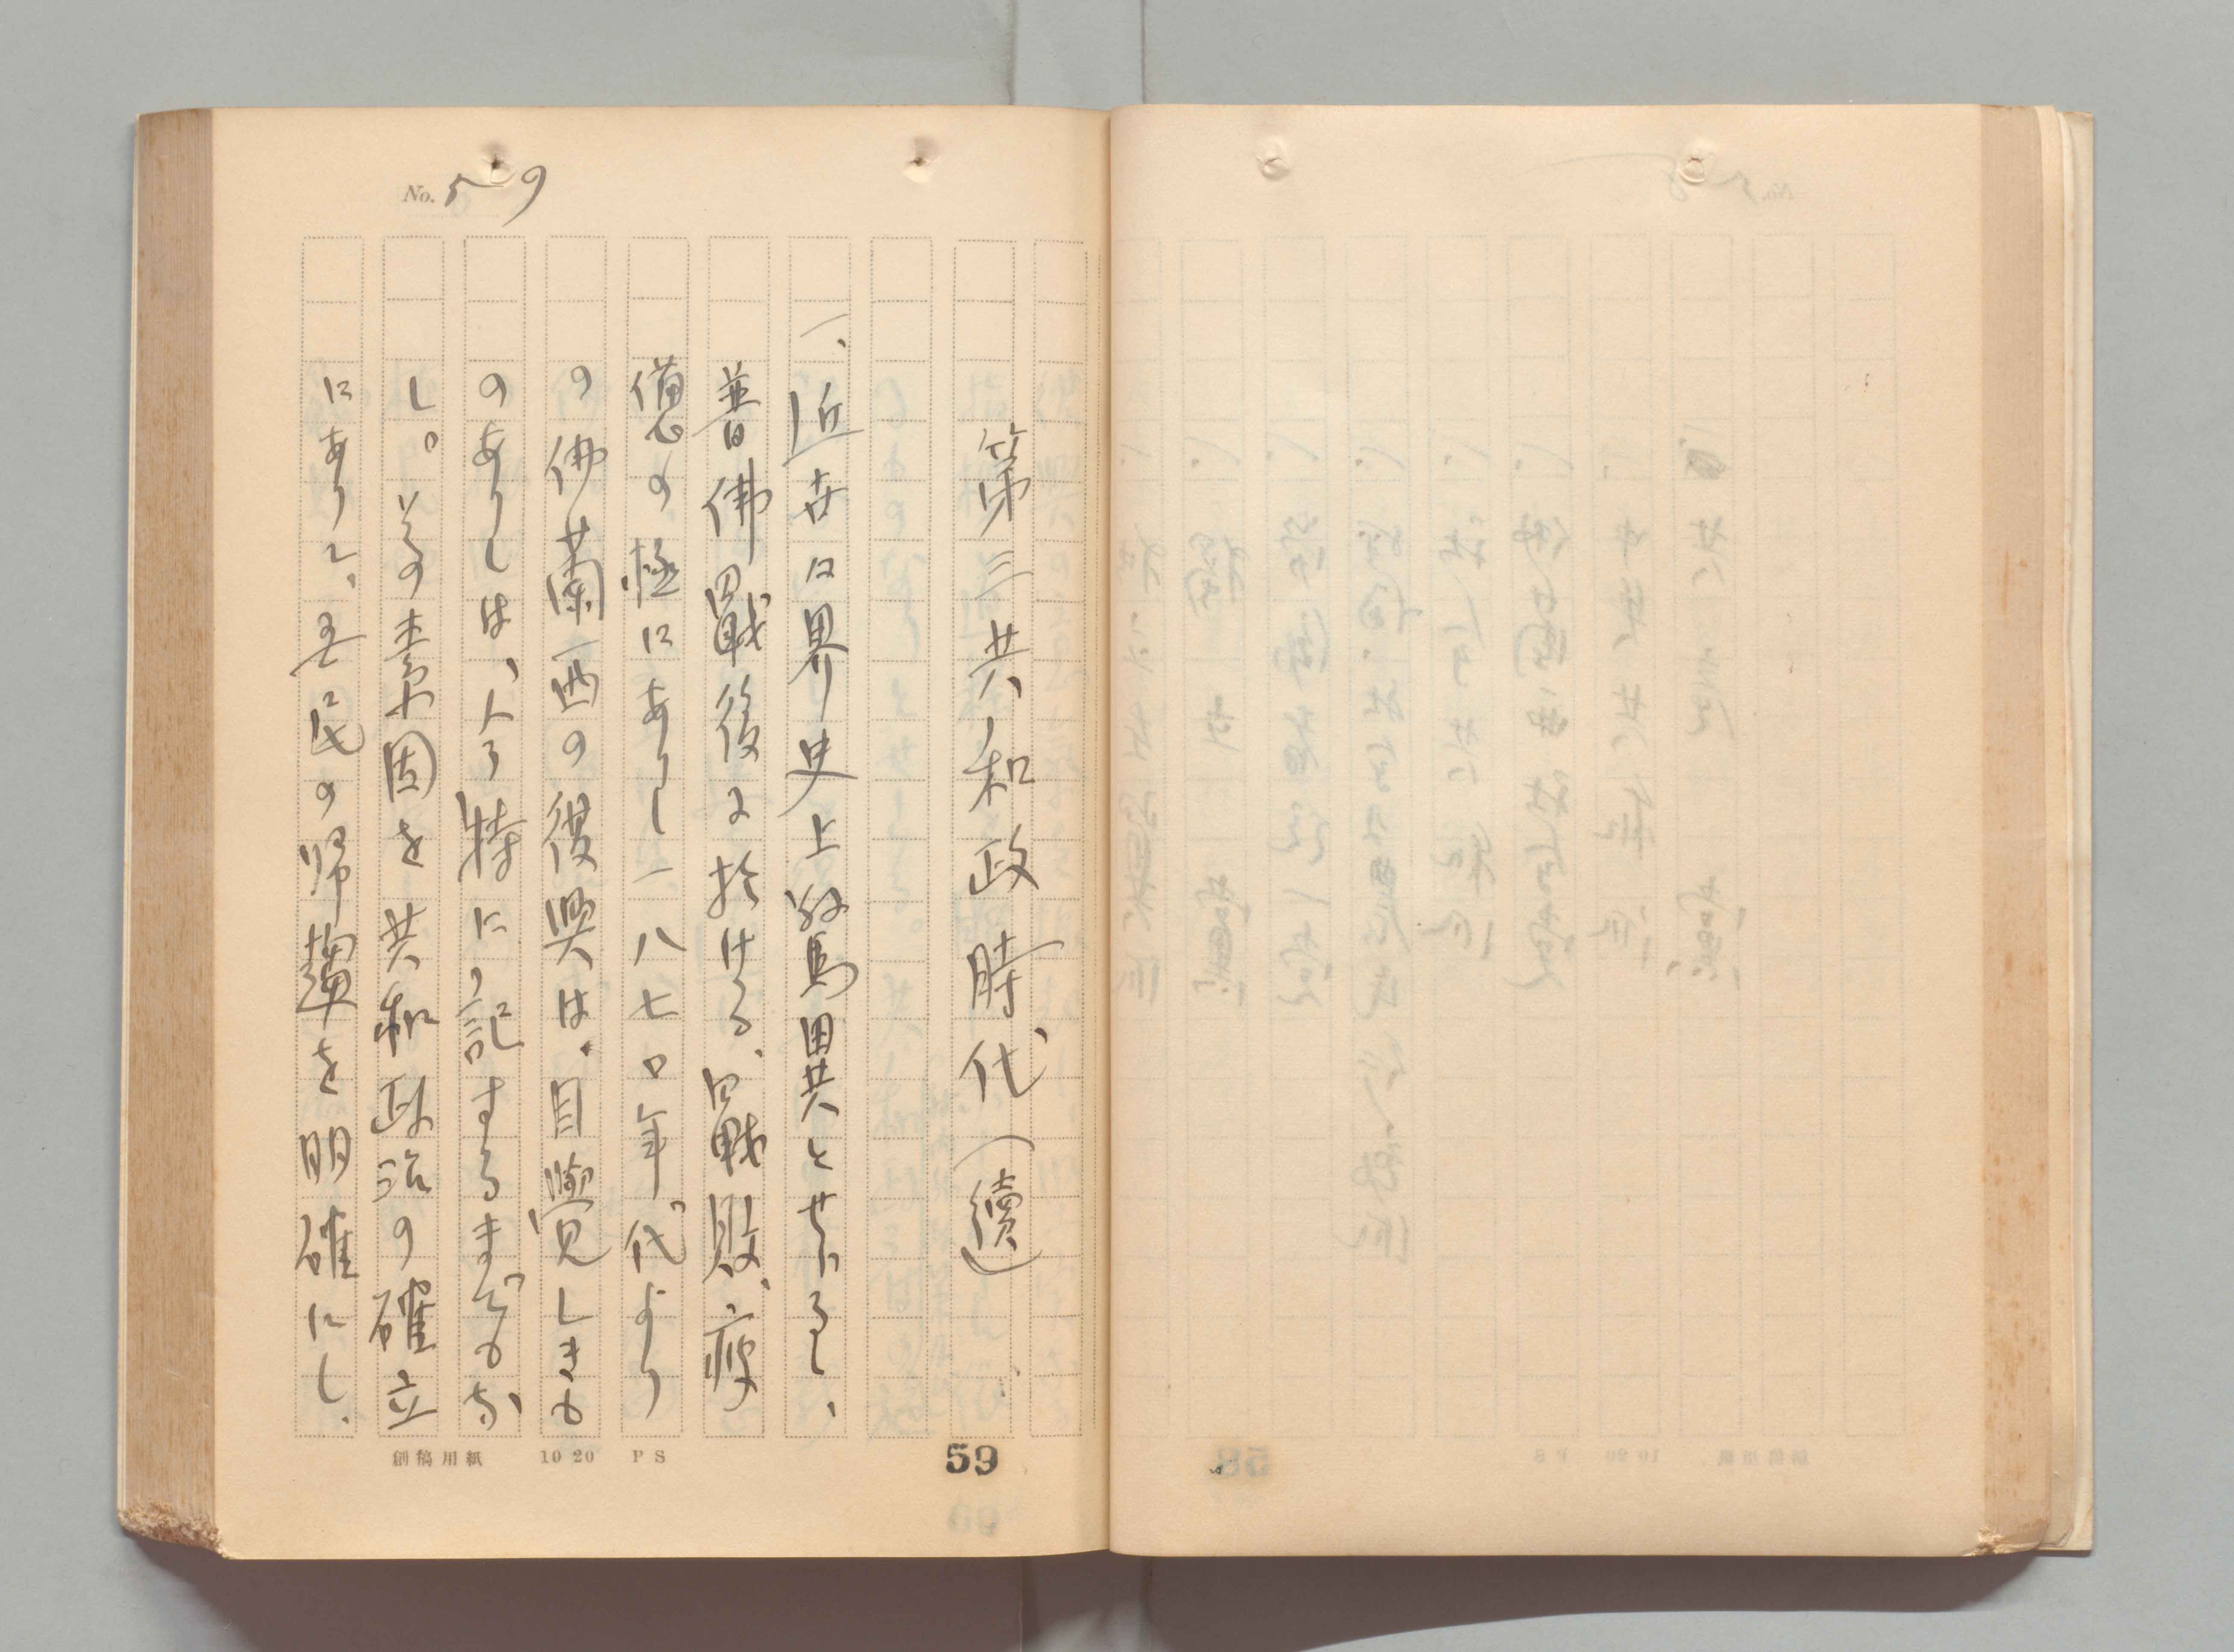 No. 59
第三共和政時代（續）
一、近世界史上驚異とせらるゝ、
普佛戰後に於ける、戰敗、疲
憊の極にありし一八七〇年代より
の佛蘭西の復興は、目覺しきも
のありしは、今更特に記するまでもな
し。その素因を共和政治の確立
にありと、民の帰趨を明確にし、
創稿用紙 10 20 PS
59